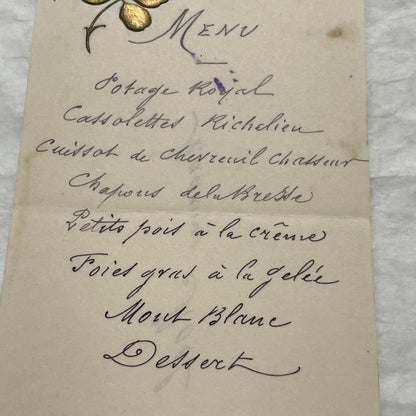 Menu
Potage Royal
Cassolettes Richelieu
Cuissot de Chevreuil Chasseur
Chapons de la Bresse
Petits pois à la crême
Foies gras à la gelée
Mont Blanc
Dessert